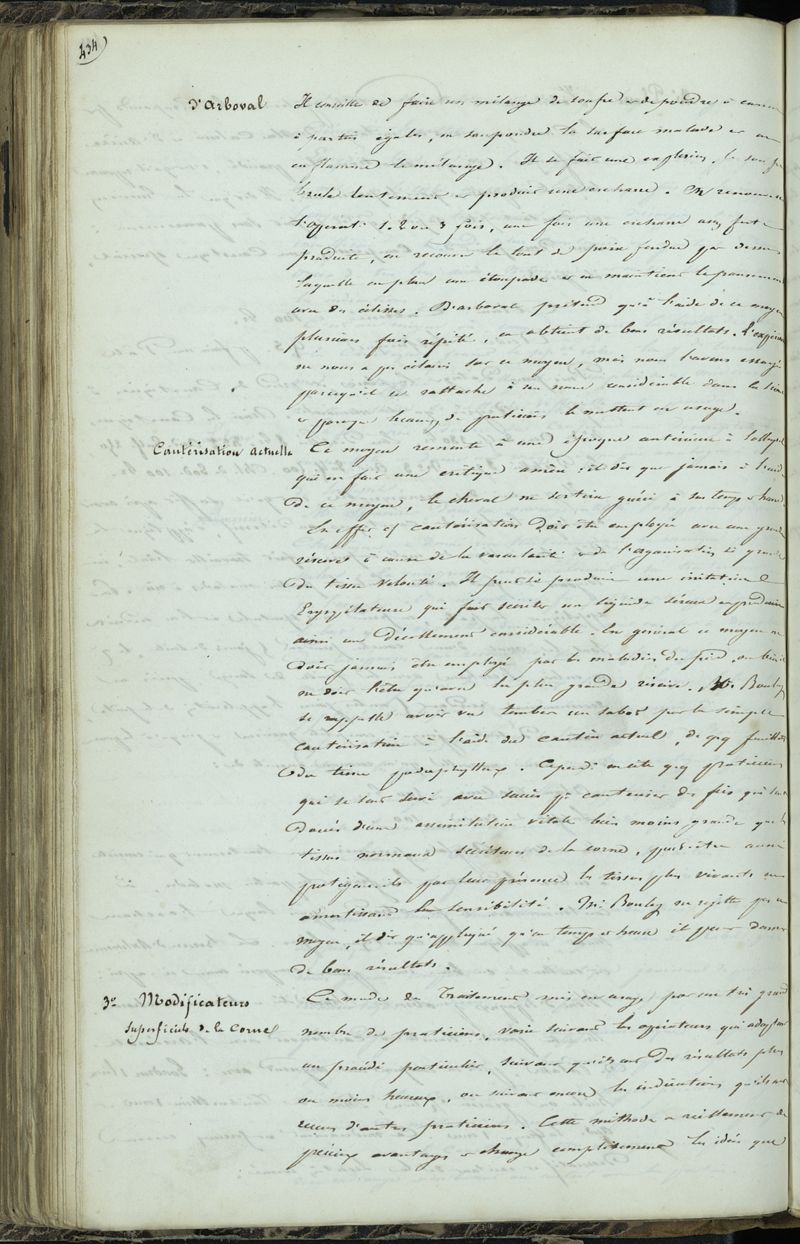 434
d'Arboval
Il conseille de faire un mélange de soufre et de poudre à canon
à parties égales, on saupoudre la surface malade et on
enflamme le mélange. Il se fait une explosion, le soufre
brule lentement et produit une escharre. On renouvelle
l'operat. 1. 2 ou 3 fois, une fois une escharre assez forte
produite, on recouvre le tout de poix fondue par dessus
laquelle on place une étoupade et on maintient le pansement
avec des éclisses. D'arboval prétend qu'à l'aide de ce moyen
plusieurs fois répété, on obtient de bons résultats. L'expérience
ne nous a pas éclairé sur ce moyen, mais nous l'avons
parcequ'il se rattache à un nom considérable dans la science
et parceque beaucoup de praticiens le mettent en usage.
Cautérisation actuelle
Ce moyen remonte à une époque antérieure à Solleysel
qui en fait une critique amère; il dit que jamais à l'aide
de ce moyen, le cheval ne sortira guéri à son temps
En effet cautérisation doit être employée avec une grande
réserve à cause de la vascularité et de l'organisation
du tissu velouté. Il peut se produire une irritation
Erysipélateuse qui fait secréter un liquide séreux
ainsi un décollement considérable. En general ce moyen ne
doit jamais être employé par les maladies du pied, ou bien il
ne doit l'être qu'avec la plus grande réserve. Mr. Bouley
se rappelle avoir vu tomber un sabot par la simple
cautérisation à l'aide du cautère actuel, de qq feuillets
du tissu podophylleux. Cepend. on cite qq praticiens
qui se sont servi avec succès pr cauteriser des fics qui sont
doués d'une assimilation vitale bien moins grande que les
tissus normaux sécréteurs de la corne, peut-être aussi
protègent-ils par leur présence les tissus plus vivants en
amortissant leur sensibilité. Mr. Bouley ne rejette pas ce
moyen, il dit qu'appliqué qu'en temps et heure il peut donner
de bons résultats.
3o Modificateurs
superficiels de la Corne
Ce mode de traitement mis en usage par un très grand
nombre de praticiens, varie suivant les opérateurs qui adoptent
un procédé particulier, suivant qu'ils ont des résultats plus
ou moins heureux, ou suivant encore les indications qu'ils ont
reçues d'autres praticiens. Cette méthode a réellement de
précieux avantages et change complètement les idées que